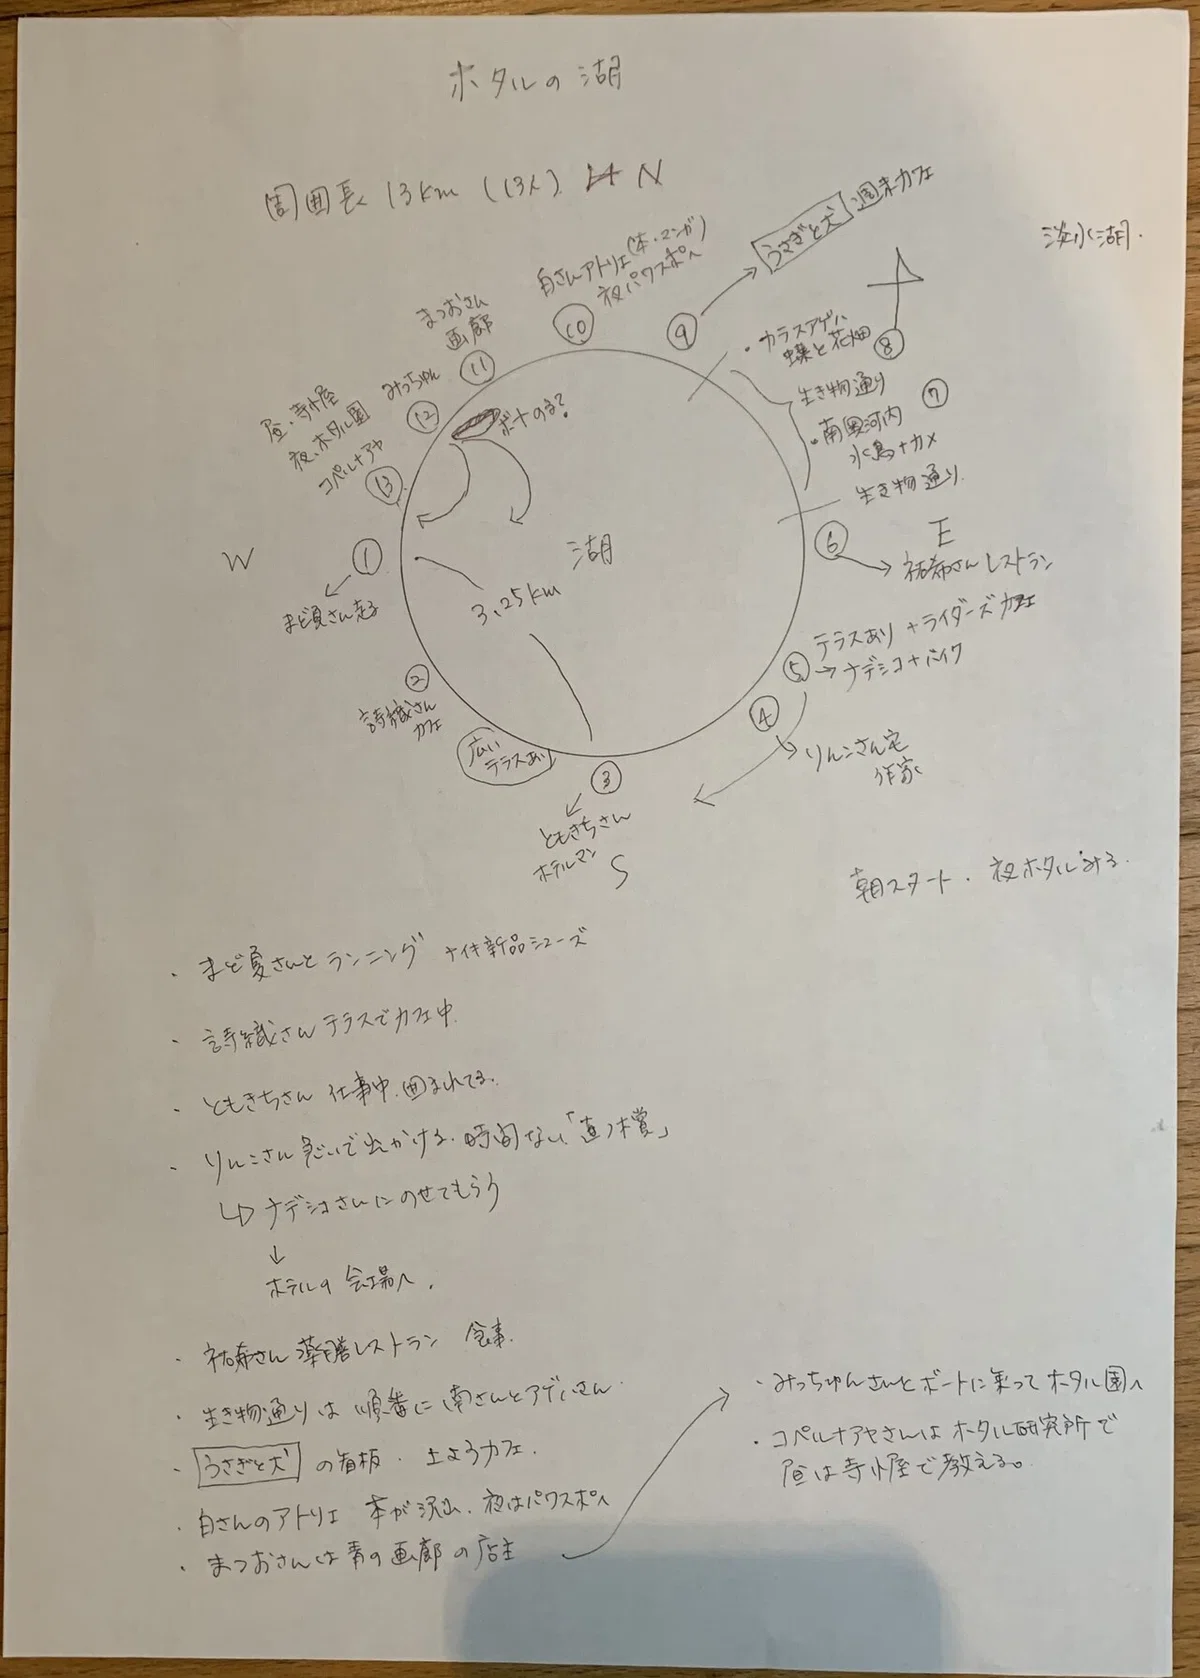 ホタルの湖
周囲長 13km (13人) N
淡水湖.
うさぎと犬 週末カフェ
⑨
白さんアトリエ(本・マンガ)
夜パワスポへ
⑩
まつおさん
画廊
⑪
みっちゅん
⑫
昼、寺小屋
夜、ホタル園
コペルナアヤ
⑬
ボートのる?
・カラスアゲハ
蝶と花畑 ⑧
生き物通り ⑦
・南 河内
水鳥+カメ
生き物通り
W
①
まど夏さん走る
湖
3.25km
⑥
E
祐希さんレストラン
テラスあり +ライダーズカフェ
⑤ → ナデシコ+バイク
④
りんこさん宅
作家
②
詩織さん
カフェ
広い
テラスあり
③
ともきちさん
ホテルマン
S
朝スタート. 夜ホタルみる.
・まど夏さんとランニング ナイキ新品シューズ
・詩織さんテラスでカフェ中.
・ともきちさん 仕事中.囲まれてる.
・りんこさん急いで出かける.時間ない.「直木賞」
↳ ナデシコさんにのせてもらう
↓
ホテルの会場へ.
・祐希さん薬膳レストラン 食事.
・生き物通りは順番に南さんとアゲハさん.
・うさぎと犬 の看板. 土ようカフェ.
・白さんのアトリエ 本が沢山、夜はパワスポへ
・まつおさんは青の画廊の店主
・みっちゅんさんとボートに乗ってホタル園へ
・コペルナアヤさんはホタル研究所で
昼は寺小屋で教える。